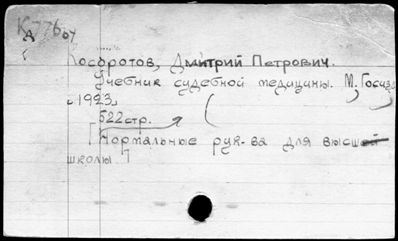 К776
Косоротов, Дмитрий Петрович.
Учебник судебной медицины. М, Госизд
1923
522стр.
[Нормальные рук-ва для высшей
школы]